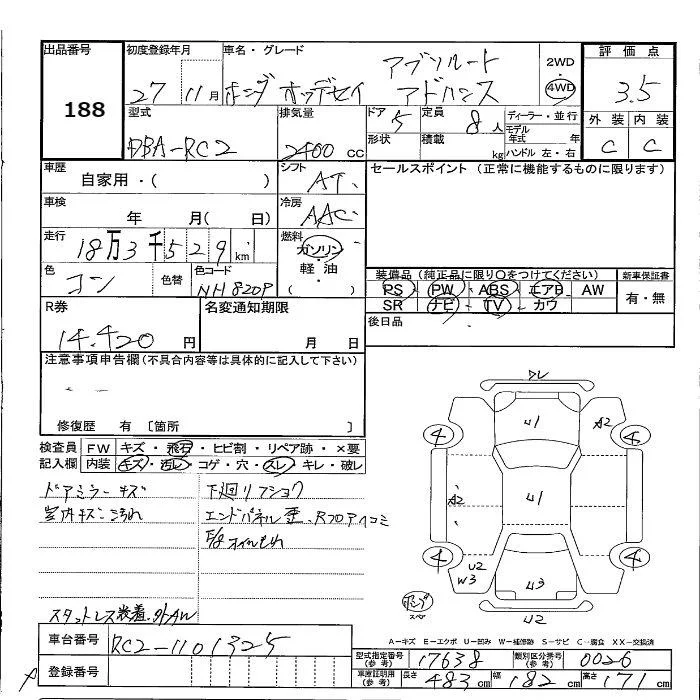 出品番号 188
初度登録年月 27年 11月
車名・グレード ホンダ オッデセイ アブソルート アドバンス
2WD・4WD
評価点 3.5
外装 内装
C C
型式 DBA-RC2
排気量 2400 cc
ドア 5
定員 8人
ディーラー・並行
形状 積載 kg
モデル年式 年
ハンドル 左・右
車歴 自家用・( )
シフト AT
セールスポイント (正常に機能するものに限ります)
車検 年 月( 日)
冷房 AAC
走行 18万3千529km
燃料 ガソリン・軽油 ( )
色 コン 色替
色コード NH820P
装備品(純正品に限り○をつけてください)
新車保証書
PS PW ABS エアB AW
有・無
SR ナビ TV カワ
R券 14.420円
名変通知期限 月 日
後日品
注意事項申告欄(不具合内容等は具体的に記入して下さい)
修復歴 有 〔箇所 〕
検査員記入欄
FW キズ・飛石・ヒビ割・リペア跡・×要
内装 キズ・汚レ・コゲ・穴・スレ・キレ・破レ
ドアミラーキズ
室内キズ・汚れ
下廻リ
エンドパネル歪
スタットレス装着・外AW
4 A2 U1 4
A2 U1
4 U2 W3 U3 4
スペア
U2
A-キズ E-エクボ U-凹み W-補修跡 S-サビ C-腐食 XX-交換済
車台番号 RC2-1101325
登録番号
型式指定番号(参考) 17638
類別区分番号(参考) 0026
車庫証明用(参考) 長さ 483cm 幅 182cm 高さ 171cm